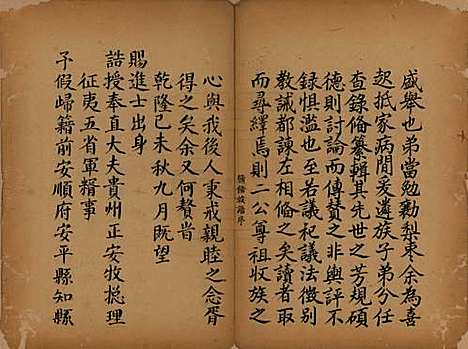 盛舉也弟當勉勷梨棗余為喜
起抵家病間爰遴族子弟分任
查錄條纂輯其先世之芳規碩
德則討論而傳贊之非輿評不
錄惧濫也至若議祀議法徴別
教誡都諫左相條之矣讀者取
而尋繹焉則二公尊祖收族之
族譜序
心與我後人東戒親睦之念胥
得之矣余又何贅焉
乾隆己未秋九月既望
賜進士出身
誥授奉直大夫貴州正安牧摠理
征夷五省軍糈事
予假歸籍前安順府安平縣知縣